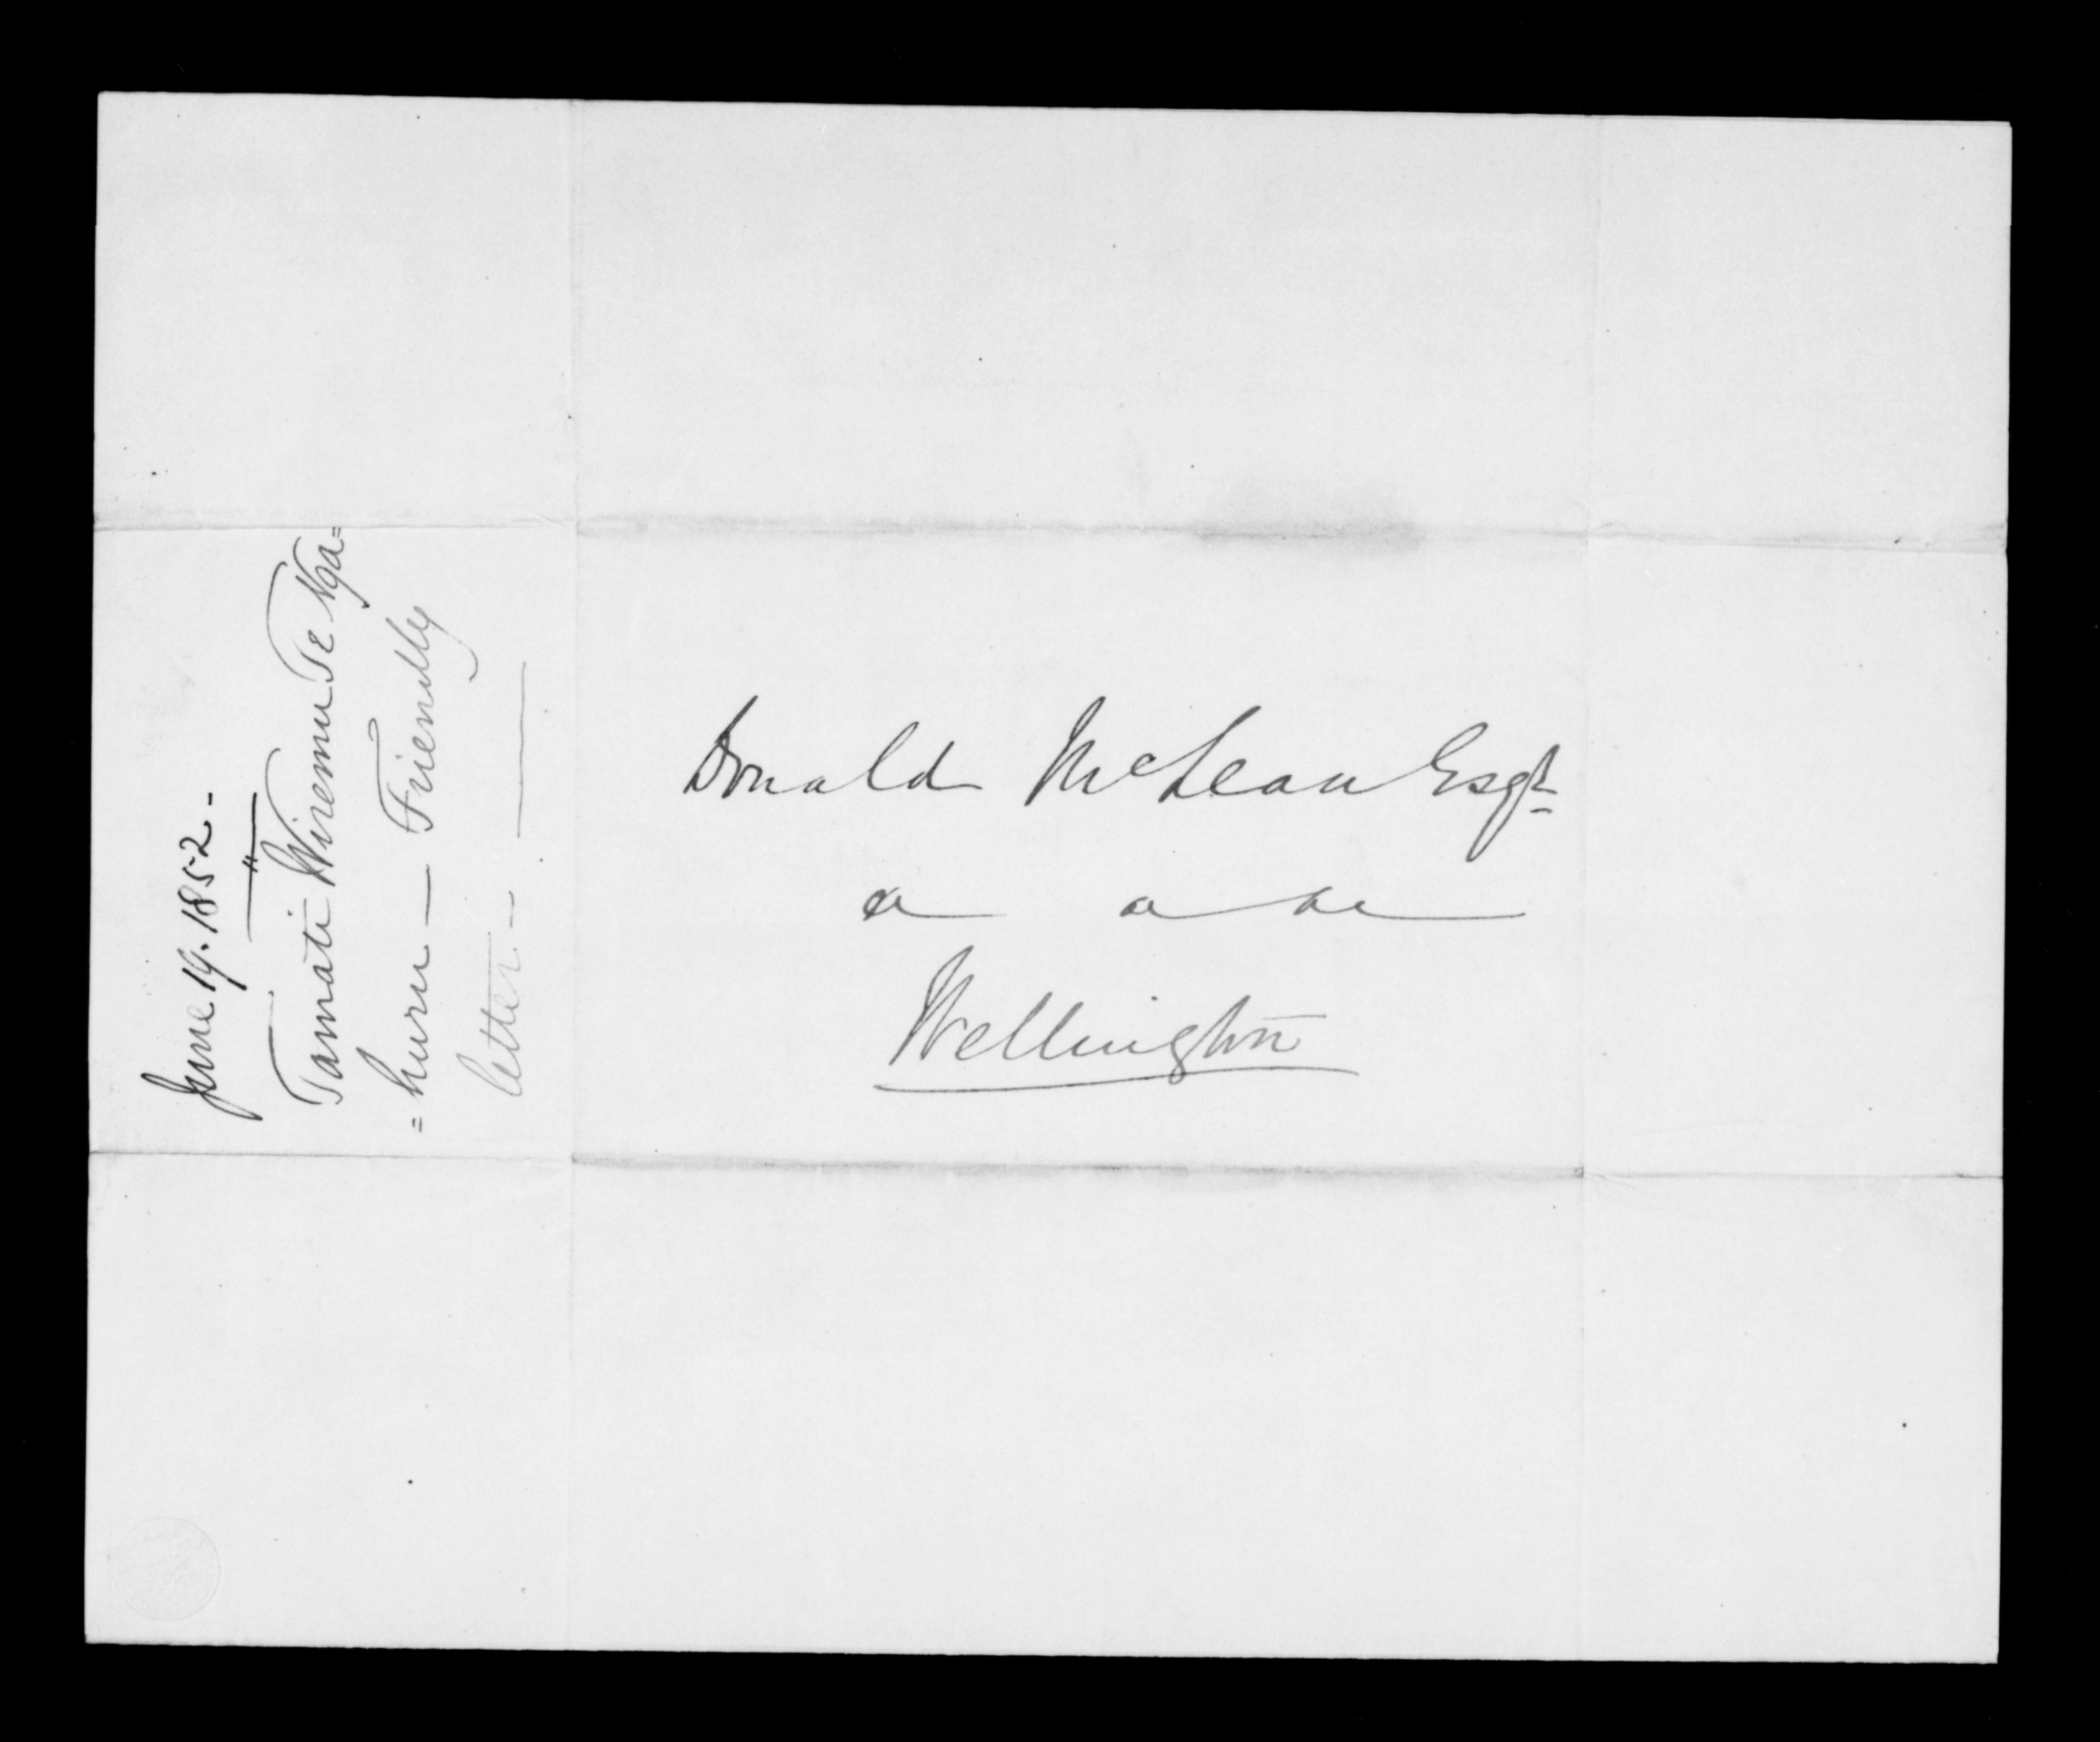 June 19. 1852 -
Tamati Wiremu Te Nga=
=huru — Friendly
letter -
Donald McLean Esqr
a a &c
Wellington